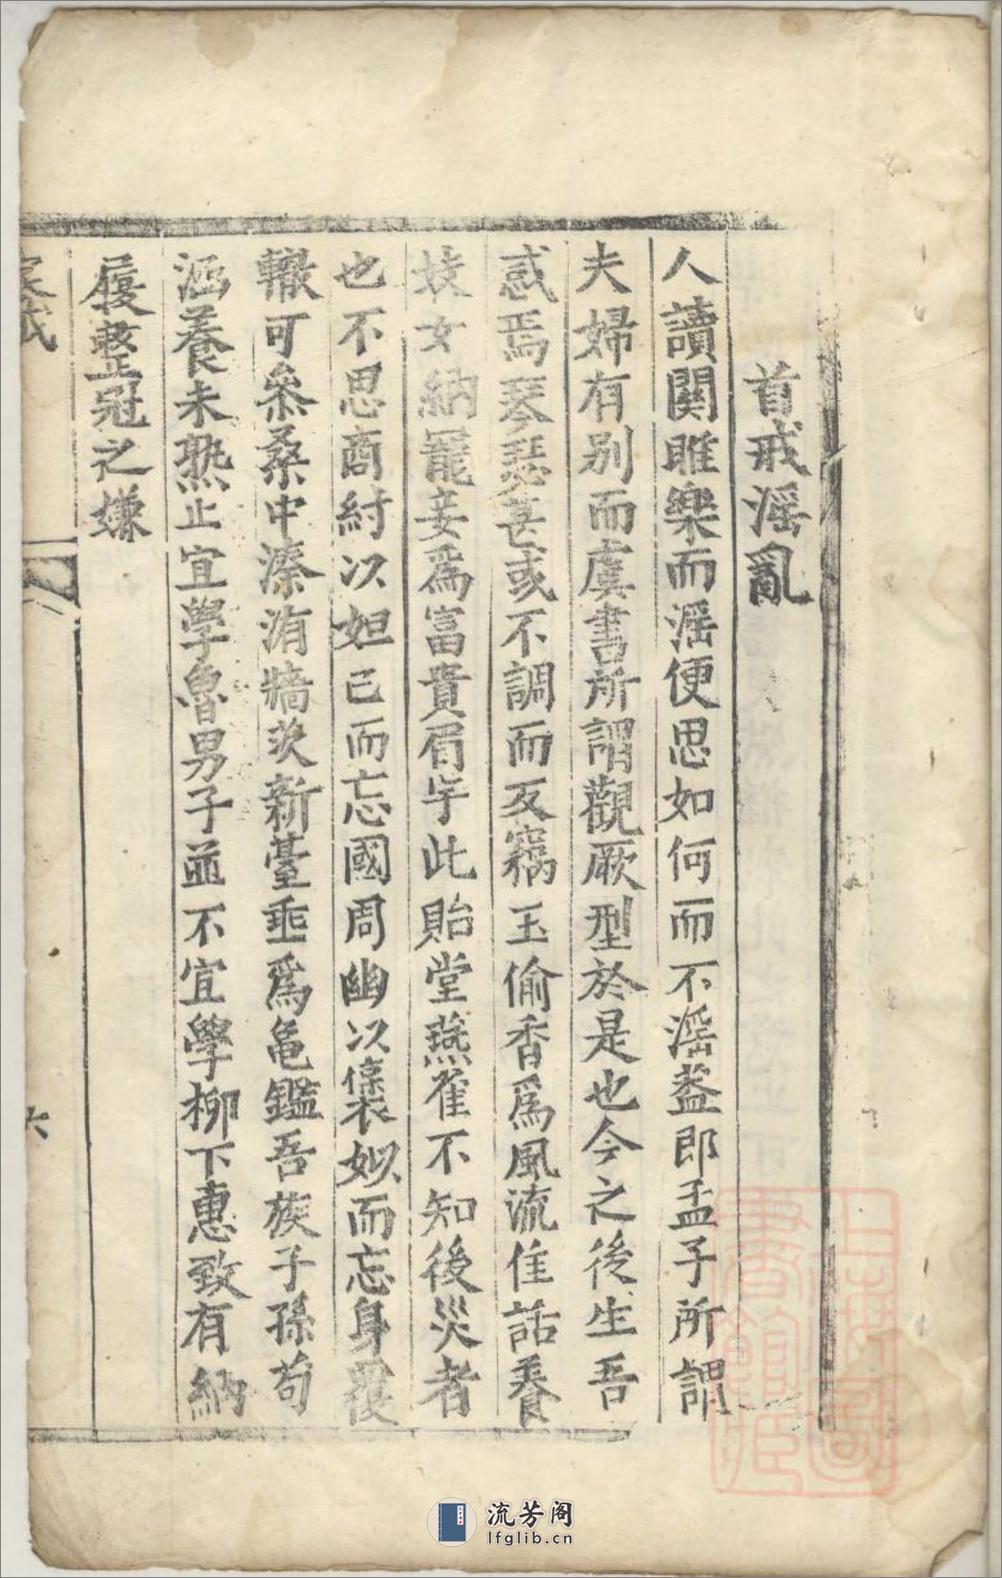 首戒滛亂
人讀関雎樂而滛便思如何而不滛葢郎孟子所謂
夫婦有别而虞書所謂觀厥型於是也今之後生吾
惑焉琴瑟甚或不調而反竊玉偷香爲風流佳話養
妓女納寵妾爲富貴眉宇此貽堂燕雀不知後災者
也不思商紂以妲己而忘國周幽以襃姒而忘身覆
轍可叅桑中溱洧牆茨新臺垂爲龜鑑吾族子孫苟
涵養未熟止宜學魯男子並不宜學柳下惠致有納
履整冠之嫌
家戒
六
流芳阁
lfglib.cn